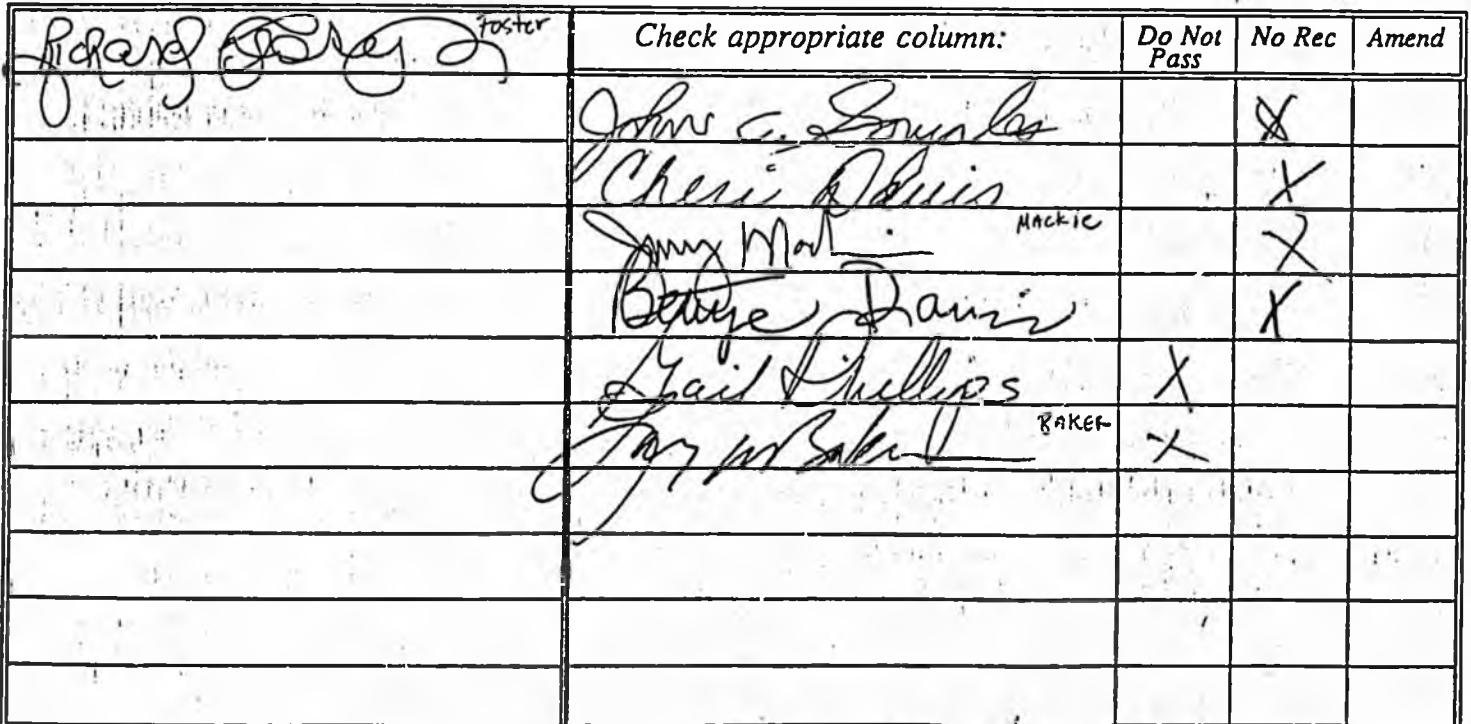 Richard Foster Foster
Check appropriate column: Do Not Pass No Rec Amend
John Gonzales X
Cheri Davis X
Jerry Mackie X
Bettye Davis X
Gail Phillips X
Baker BAKER X